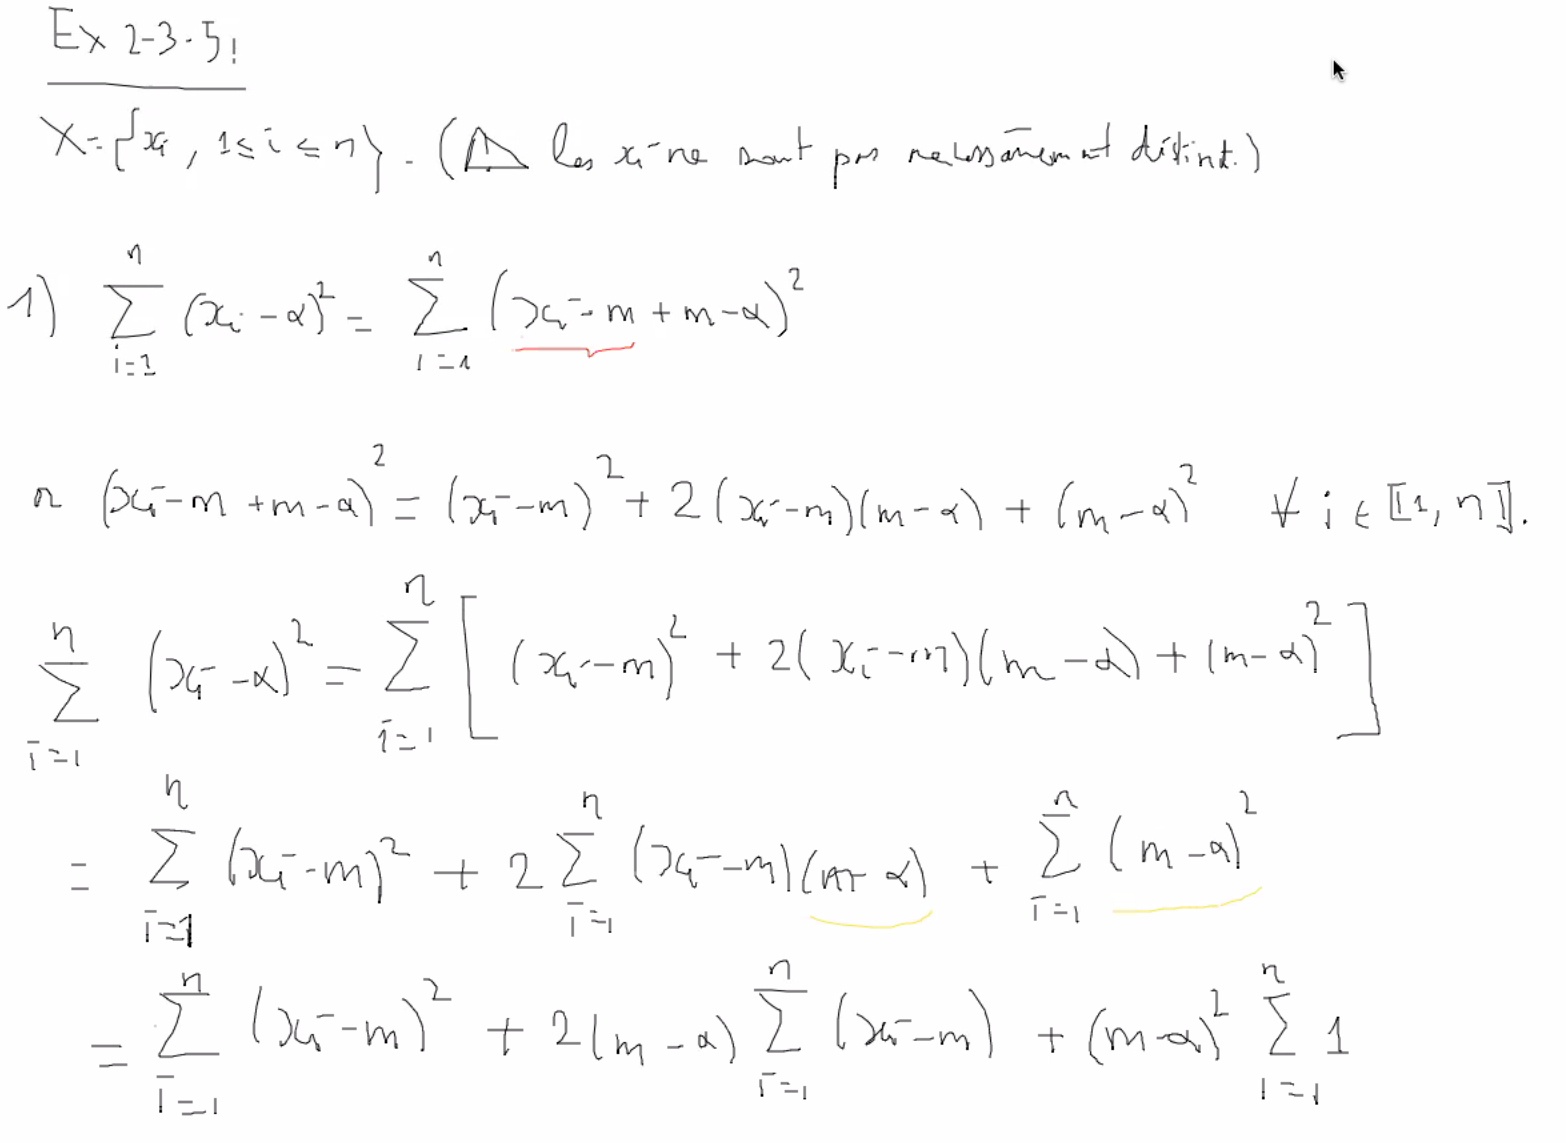 Ex 2-3-5:
X = {xi , 1 ≤ i ≤ n} . (⚠ les xi ne sont pas nécessairement distinct.)
1) ∑_{i=1}^{n} (xi - α)² = ∑_{i=1}^{n} (xi - m + m - α)²
or (xi - m + m - α)² = (xi - m)² + 2(xi - m)(m - α) + (m - α)² ∀ i ∈ ⟦1, n⟧.
∑_{i=1}^{n} (xi - α)² = ∑_{i=1}^{n} [ (xi - m)² + 2(xi - m)(m - α) + (m - α)² ]
= ∑_{i=1}^{n} (xi - m)² + 2 ∑_{i=1}^{n} (xi - m)(m - α) + ∑_{i=1}^{n} (m - α)²
= ∑_{i=1}^{n} (xi - m)² + 2(m - α) ∑_{i=1}^{n} (xi - m) + (m - α)² ∑_{i=1}^{n} 1